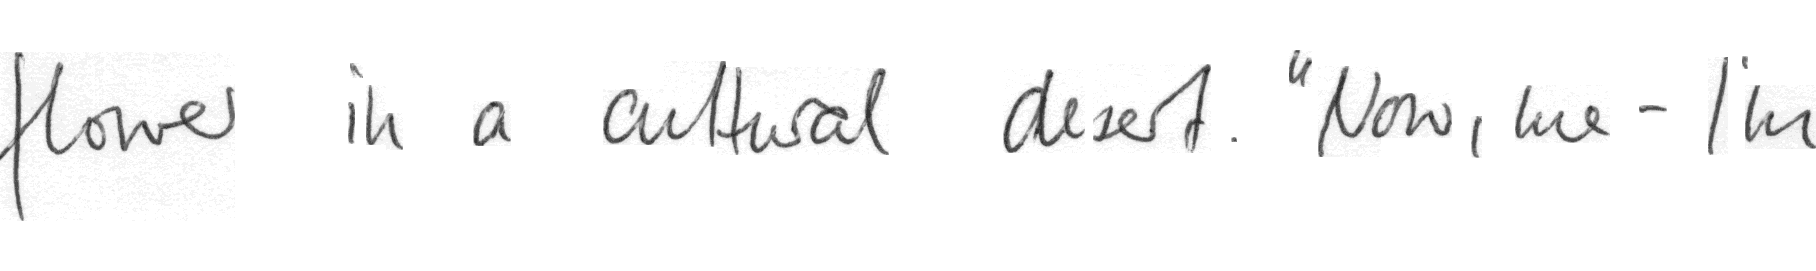 flower in a cultural desert. "Now, me - I'm